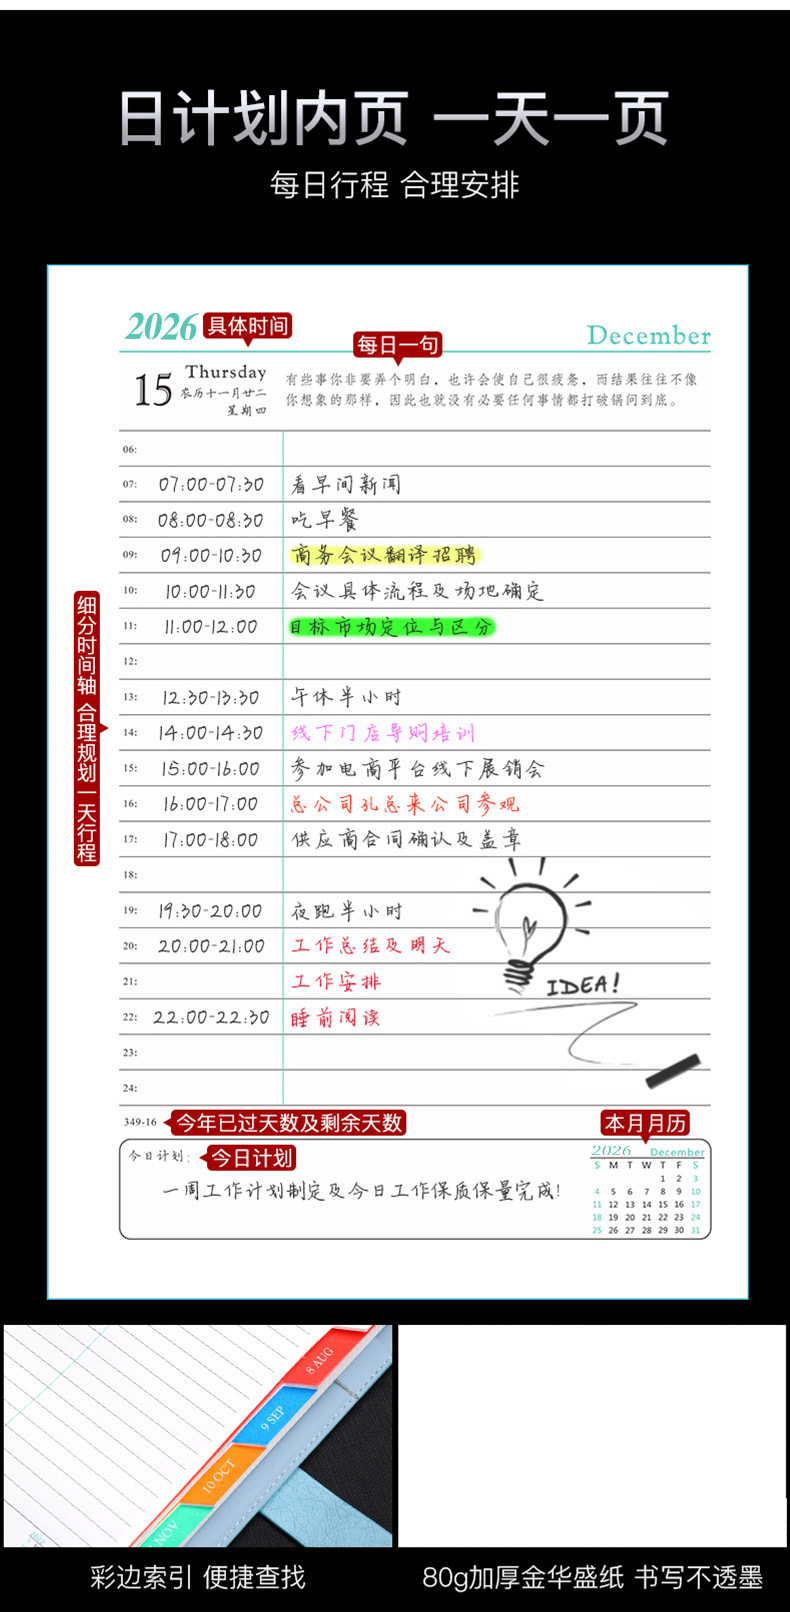 日计划内页 一天一页
每日行程 合理安排
2026 具体时间
每日一句
December
15 Thursday
农历十一月廿二
星期四
有些事你非要弄个明白，也许会使自己很疲惫，而结果往往不像
你想象的那样，因此也就没有必要任何事情都打破锅问到底。
06:
07: 07:00-07:30 看早间新闻
08: 08:00-08:30 吃早餐
09: 09:00-10:30 商务会议翻译招聘
10: 10:00-11:30 会议具体流程及场地确定
11: 11:00-12:00 目标市场定位与区分
12:
13: 12:30-13:30 午休半小时
14: 14:00-14:30 线下门店导购培训
15: 15:00-16:00 参加电商平台线下展销会
16: 16:00-17:00 总公司孔总来公司参观
17: 17:00-18:00 供应商合同确认及盖章
18:
19: 19:30-20:00 夜跑半小时
20: 20:00-21:00 工作总结及明天
21: 工作安排
22: 22:00-22:30 睡前阅读
23:
24:
IDEA!
细分时间轴 合理规划一天行程
349-16 今年已过天数及剩余天数
本月月历
今日计划: 今日计划
一周工作计划制定及今日工作保质保量完成!
2026 December
S M T W T F S
1 2 3
4 5 6 7 8 9 10
11 12 13 14 15 16 17
18 19 20 21 22 23 24
25 26 27 28 29 30 31
8 AUG
9 SEP
10 OCT
NOV
彩边索引 便捷查找
80g加厚金华盛纸 书写不透墨